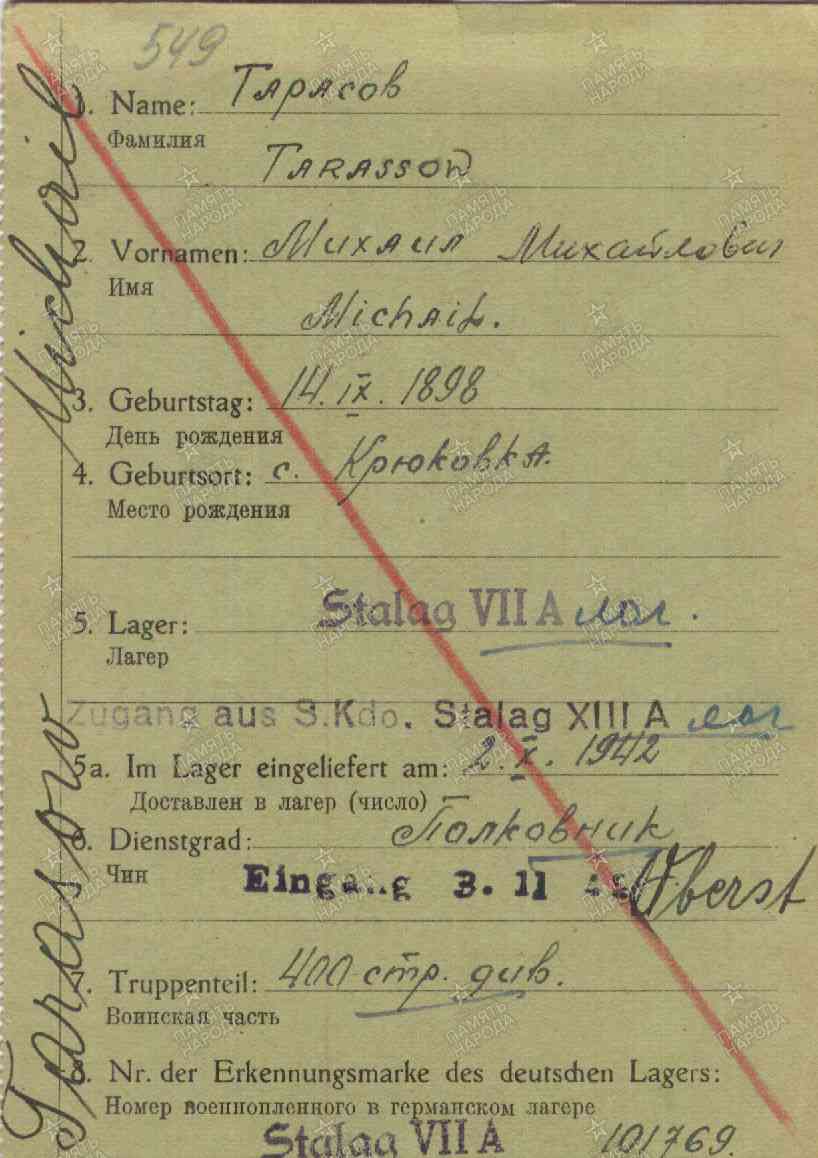 549
1. Name: Тарасов
Фамилия
TARASSOW
2. Vornamen: Михаил Михайлович
Имя
Michail.
3. Geburtstag: 14. IX. 1898
День рождения
4. Geburtsort: с. Крюковка.
Место рождения
5. Lager: Stalag VII A лаг.
Лагер
Zugang aus S.Kdo. Stalag XIII A лаг
5a. Im Lager eingeliefert am: 2. X. 1942
Доставлен в лагер (число)
6. Dienstgrad: Полковник
Чин
Eingang 3. 11 42 Oberst
7. Truppenteil: 400 стр. див.
Воинская часть
8. Nr. der Erkennungsmarke des deutschen Lagers:
Номер военнопленного в германском лагере
Stalag VII A 101769.
Tarassow Michail
ПАМЯТЬ
НАРОДА